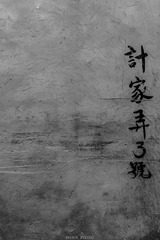 計家弄3號